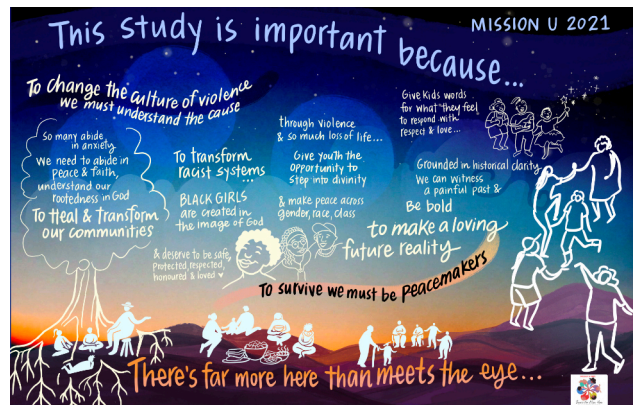 This study is important because...
MISSION U 2021
To change the culture of violence
we must understand the cause
So many abide
in anxiety
We need to abide in
peace & faith,
understand our
rootedness in God
To Heal & transform
our communities
To transform
racist systems...
BLACK GIRLS
are created in
the image of God
& deserve to be safe,
protected, respected,
honoured & loved ♥
through violence
& so much loss of life...
Give youth the
opportunity to
step into divinity
& make peace across
gender, race, class
Give kids words
for what they feel
to respond with
respect & love...
Grounded in historical clarity
We can witness
a painful past &
Be bold
to make a loving
future reality
To survive we must be peacemakers
There's far more here than meets the eye...